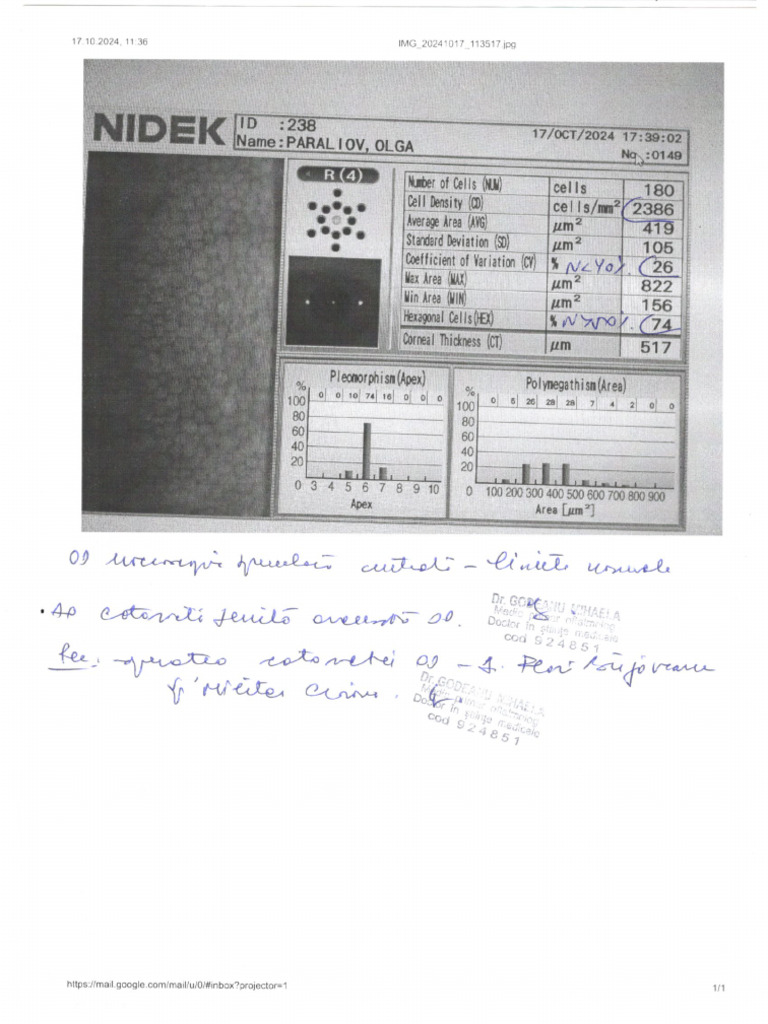 17.10.2024, 11:36
IMG_20241017_113517.jpg
NIDEK
ID :238
Name:PARALIOV, OLGA
17/OCT/2024 17:39:02
No :0149
R(4)
Number of Cells (NUM) cells 180
Cell Density (CD) cells/mm² 2386
Average Area (AVG) µm² 419
Standard Deviation (SD) µm² 105
Coefficient of Variation (CV) % N<40%. 26
Max Area (MAX) µm² 822
Min Area (MIN) µm² 156
Hexagonal Cells(HEX) % 74
Corneal Thickness (CT) µm 517
Pleomorphism(Apex)
%
0 0 10 74 16 0 0 0
100
80
60
40
20
0 3 4 5 6 7 8 9 10
Apex
Polymegathism(Area)
%
0 5 26 28 28 7 4 2 0 0
100
80
60
40
20
0 100 200 300 400 500 600 700 800 900
Area [µm²]
centrală – limite normale
Dr. GODEANU MIHAELA
Medic primar oftalmolog
Doctor în științe medicale
cod 924851
Rec:
Dr. GODEANU MIHAELA
Medic primar oftalmolog
Doctor în științe medicale
cod 924851
https://mail.google.com/mail/u/0/#inbox?projector=1
1/1